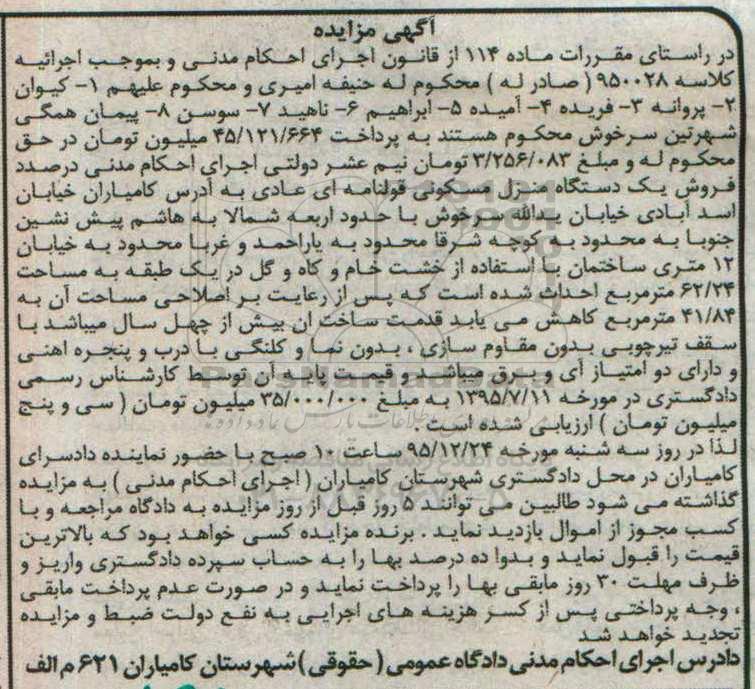 آگهی مزایده
در راستای مقررات ماده ۱۱۴ از قانون اجرای احکام مدنی و بموجب اجرائیه
کلاسه ۹۵۰۰۲۸ ( صادر له ) محکوم له حنیفه امیری و محکوم علیهم ۱- کیوان
۲- پروانه ۳- فریده ۴- آمیده ۵- ابراهیم ۶- ناهید ۷- سوسن ۸- پیمان همگی
شهرتین سرخوش محکوم هستند به پرداخت ۴۵/۱۲۱/۶۶۴ میلیون تومان در حق
محکوم له و مبلغ ۳/۲۵۶/۰۸۳ تومان نیم عشر دولتی اجرای احکام مدنی درصدد
فروش یک دستگاه منزل مسکونی قولنامه ای عادی به آدرس کامیاران خیابان
اسد آبادی خیابان یدالله سرخوش با حدود اربعه شمالا به هاشم پیش نشین
جنوبا به محدود به کوچه شرقا محدود به یاراحمد و غربا محدود به خیابان
۱۲ متری ساختمان با استفاده از خشت خام و کاه و گل در یک طبقه به مساحت
۶۲/۲۴ مترمربع احداث شده است که پس از رعایت بر اصلاحی مساحت آن به
۴۱/۸۴ مترمربع کاهش می یابد قدمت ساخت ان بیش از چهل سال میباشد با
سقف تیرچوبی بدون مقاوم سازی ، بدون نما و کلنگی با درب و پنجره اهنی
و دارای دو امتیاز آی و برق میباشد و قیمت پایه آن توسط کارشناس رسمی
دادگستری در مورخه ۱۳۹۵/۷/۱۱ به مبلغ ۳۵/۰۰۰/۰۰۰ میلیون تومان ( سی و پنج
میلیون تومان ) ارزیابی شده است .
لذا در روز سه شنبه مورخه ۹۵/۱۲/۲۴ ساعت ۱۰ صبح با حضور نماینده دادسرای
کامیاران در محل دادگستری شهرستان کامیاران ( اجرای احکام مدنی ) به مزایده
گذاشته می شود طالبین می توانند ۵ روز قبل از روز مزایده به دادگاه مراجعه و با
کسب مجوز از اموال بازدید نماید . برنده مزایده کسی خواهد بود که بالاترین
قیمت را قبول نماید و بدوا ده درصد بها را به حساب سپرده دادگستری واریز و
ظرف مهلت ۳۰ روز مابقی بها را پرداخت نماید و در صورت عدم پرداخت مابقی
، وجه پرداختی پس از کسر هزینه های اجرایی به نفع دولت ضبط و مزایده
تجدید خواهد شد
دادرس اجرای احکام مدنی دادگاه عمومی ( حقوقی ) شهرستان کامیاران ۶۲۱ م الف
ParsNamadData